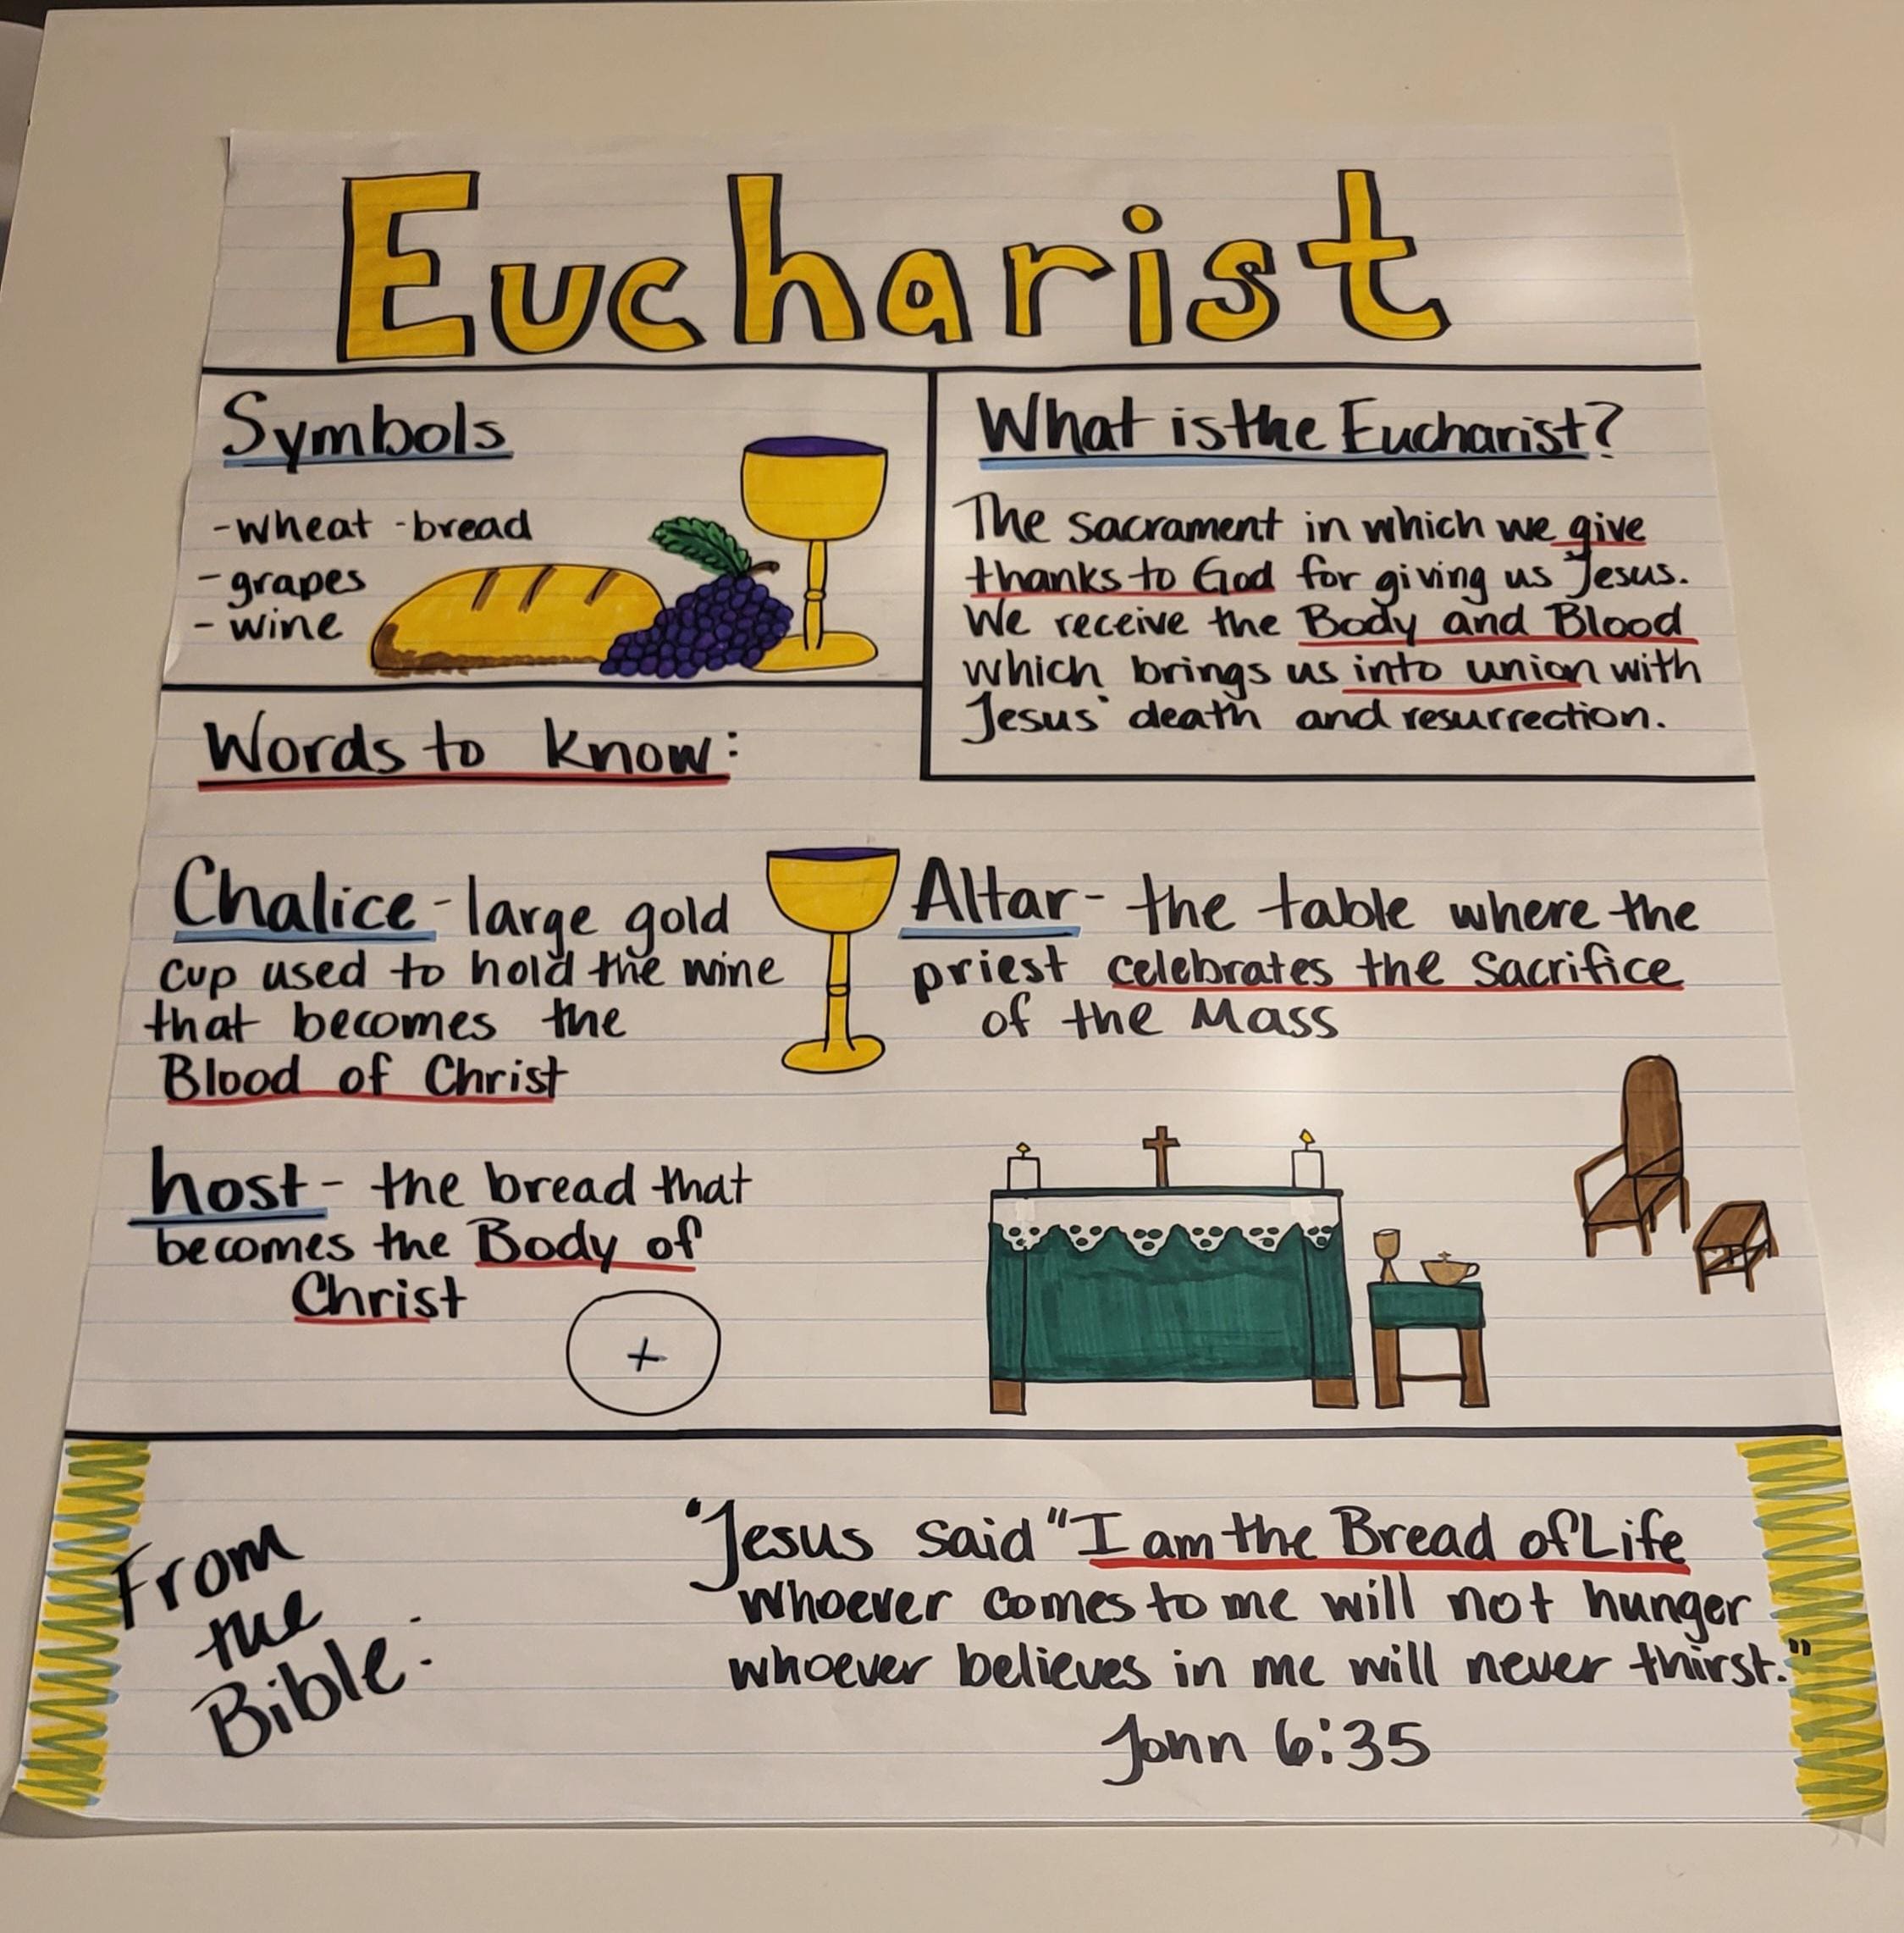 Eucharist
Symbols
-wheat -bread
- grapes
- wine
What is the Eucharist?
The sacrament in which we give
thanks to God for giving us Jesus.
We receive the Body and Blood
which brings us into union with
Jesus' death and resurrection.
Words to know:
Chalice - large gold
cup used to hold the wine
that becomes the
Blood of Christ
Altar - the table where the
priest celebrates the sacrifice
of the Mass
host - the bread that
becomes the Body of
Christ
From
the
Bible:
"Jesus said "I am the Bread of Life
whoever comes to me will not hunger
whoever believes in me will never thirst."
John 6:35